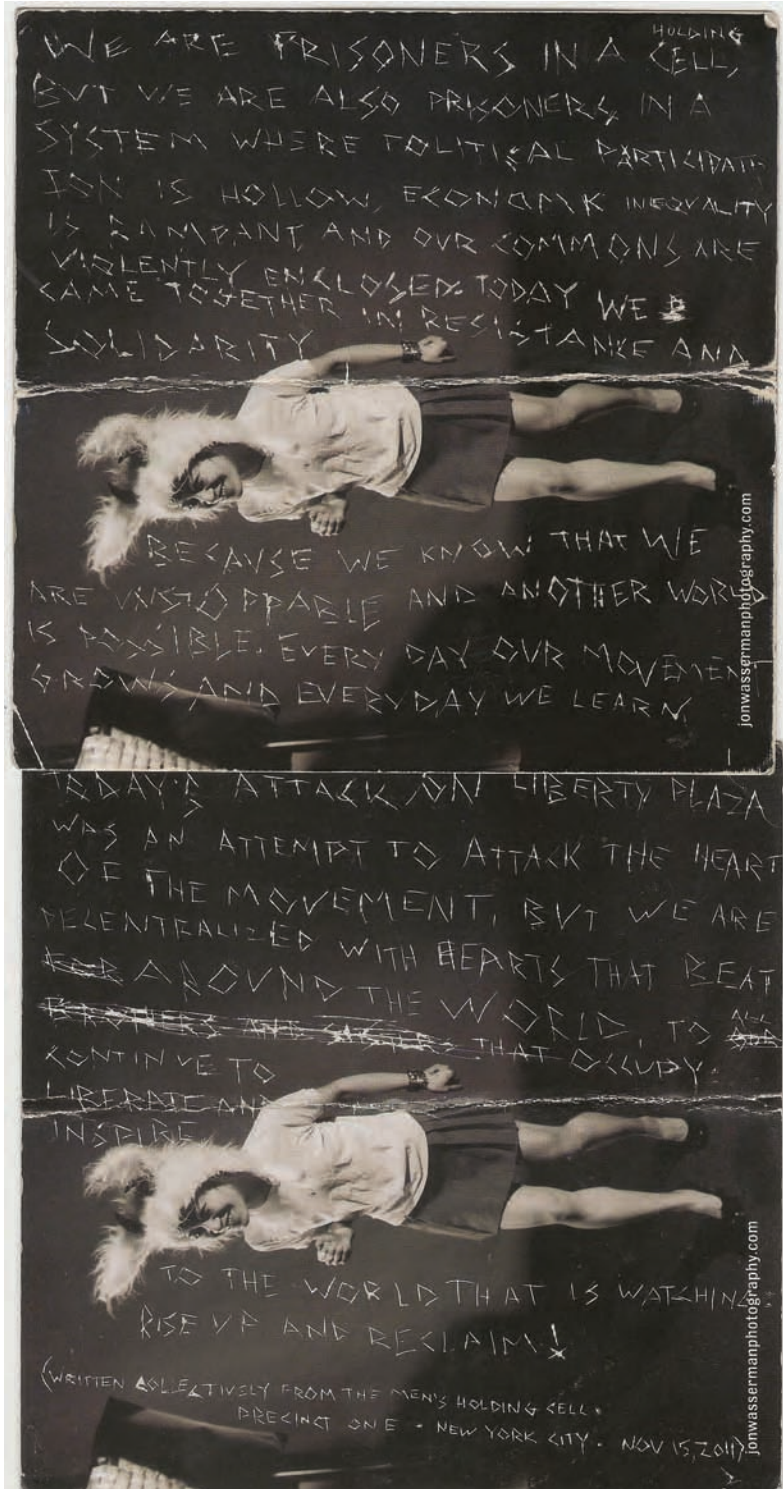 HOLDING
WE ARE PRISONERS IN A CELL,
BUT WE ARE ALSO PRISONERS IN A
SYSTEM WHERE POLITICAL PARTICIPAT-
ION IS HOLLOW, ECONOMIK INEQUALITY
IS RAMPANT, AND OUR COMMONS ARE
VIOLENTLY ENCLOSED. TODAY WE
CAME TOGETHER IN RESISTANCE AND
SOLIDARITY
BECAUSE WE KNOW THAT WE
ARE UNSTOPPABLE AND ANOTHER WORLD
IS POSSIBLE. EVERY DAY OUR MOVEMENT
GROWS, AND EVERYDAY WE LEARN.
jonwassermanphotography.com
TODAY'S ATTACK ON LIBERTY PLAZA
WAS AN ATTEMPT TO ATTACK THE HEART
OF THE MOVEMENT, BUT WE ARE
DECENTRALIZED WITH HEARTS THAT BEAT
AROUND THE WORLD, TO ALL
BROTHERS AND SISTERS THAT OCCUPY.
CONTINUE TO
LIBERATE AND
INSPIRE
TO THE WORLD THAT IS WATCHING
RISE UP AND RECLAIM!
(WRITTEN COLLECTIVELY FROM THE MEN'S HOLDING CELL.
PRECINCT ONE - NEW YORK CITY. NOV 15, 2011)
jonwassermanphotography.com